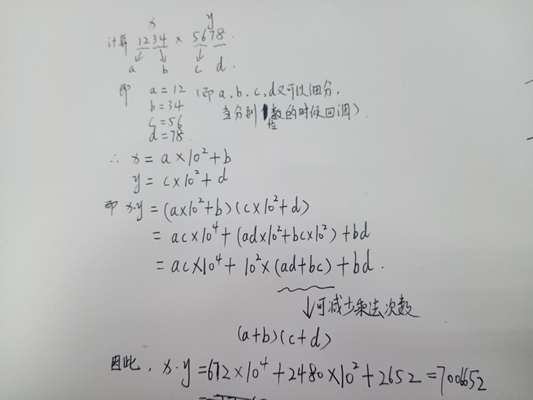 x y
计算 1234 × 5678.
a b c d.
即 a = 12 (即 a、b、c、d又可以细分,
b = 34 当分到1位数的时候回调)
c = 56
d = 78.
∴ x = a×10²+b
y = c×10²+d
即 x·y = (a×10²+b)(c×10²+d)
= ac×10⁴+(ad×10²+bc×10²)+bd
= ac×10⁴+10²×(ad+bc)+bd.
↓可减少乘法次数
(a+b)(c+d)
因此, x·y = 672×10⁴+2480×10²+2652 = 7006652